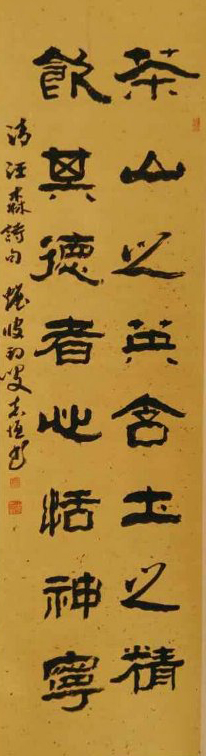 茶山之英含土之精
飲其德者心恬神寧
清汪森詩句